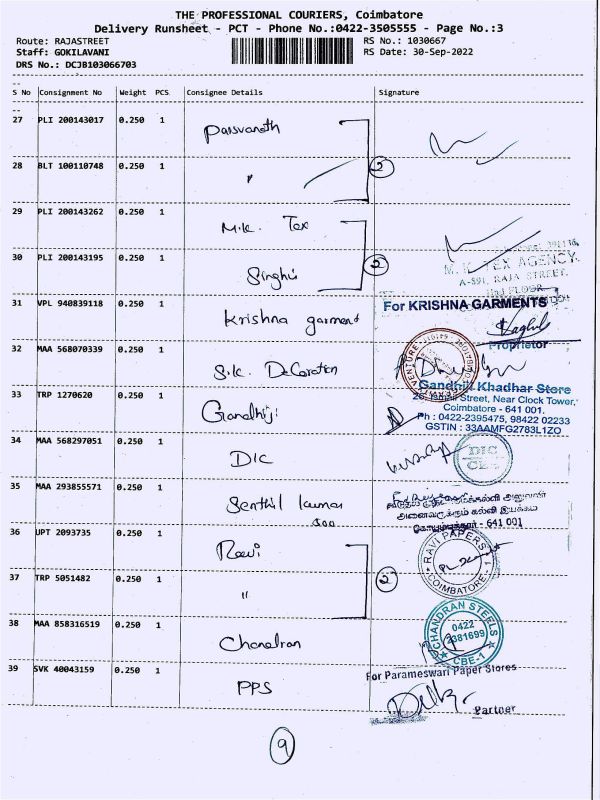 THE PROFESSIONAL COURIERS, Coimbatore
Delivery Runsheet - PCT - Phone No.:0422-3505555 - Page No.:3
Route: RAJASTREET
RS No.: 1030667
Staff: GOKILAVANI
RS Date: 30-Sep-2022
DRS No.: DCJB103066703
S No Consignment No Weight PCS Consignee Details Signature
27 PLI 200143017 0.250 1 Parsvanath
28 BLT 100110748 0.250 1 " 2
29 PLI 200143262 0.250 1 M.K. Tex
30 PLI 200143195 0.250 1 Singhis 2
M. K. TEX AGENCY.
A-591, RAJA STREET.
IInd FLOOR
31 VPL 940839118 0.250 1 Krishna garment
For KRISHNA GARMENTS
Proprietor
32 MAA 568070339 0.250 1 S.K. Decoration
33 TRP 1270620 0.250 1 Gandhiji
Gandhiji Khadhar Store
Street, Near Clock Tower,
Coimbatore - 641 001.
Ph : 0422-2395475, 98422 02233
GSTIN : 33AAMFG2783L1ZO
34 MAA 568297051 0.250 1 DIC
DIC
CBE
35 MAA 293855571 0.250 1 Senthil kumar
son
அனைவருக்கும் கல்வி இயக்கம்
கோயம்புத்தூர் - 641 001
36 UPT 2093735 0.250 1 Ravi
RAVI PAPERS
COIMBATORE - 1
37 TRP 5051482 0.250 1 " 2
38 MAA 858316519 0.250 1 Chandran
CHANDRAN STEELS
0422
2381699
CBE-1
39 SVK 40043159 0.250 1 PPS
For Parameswari Paper Stores
Partner
9